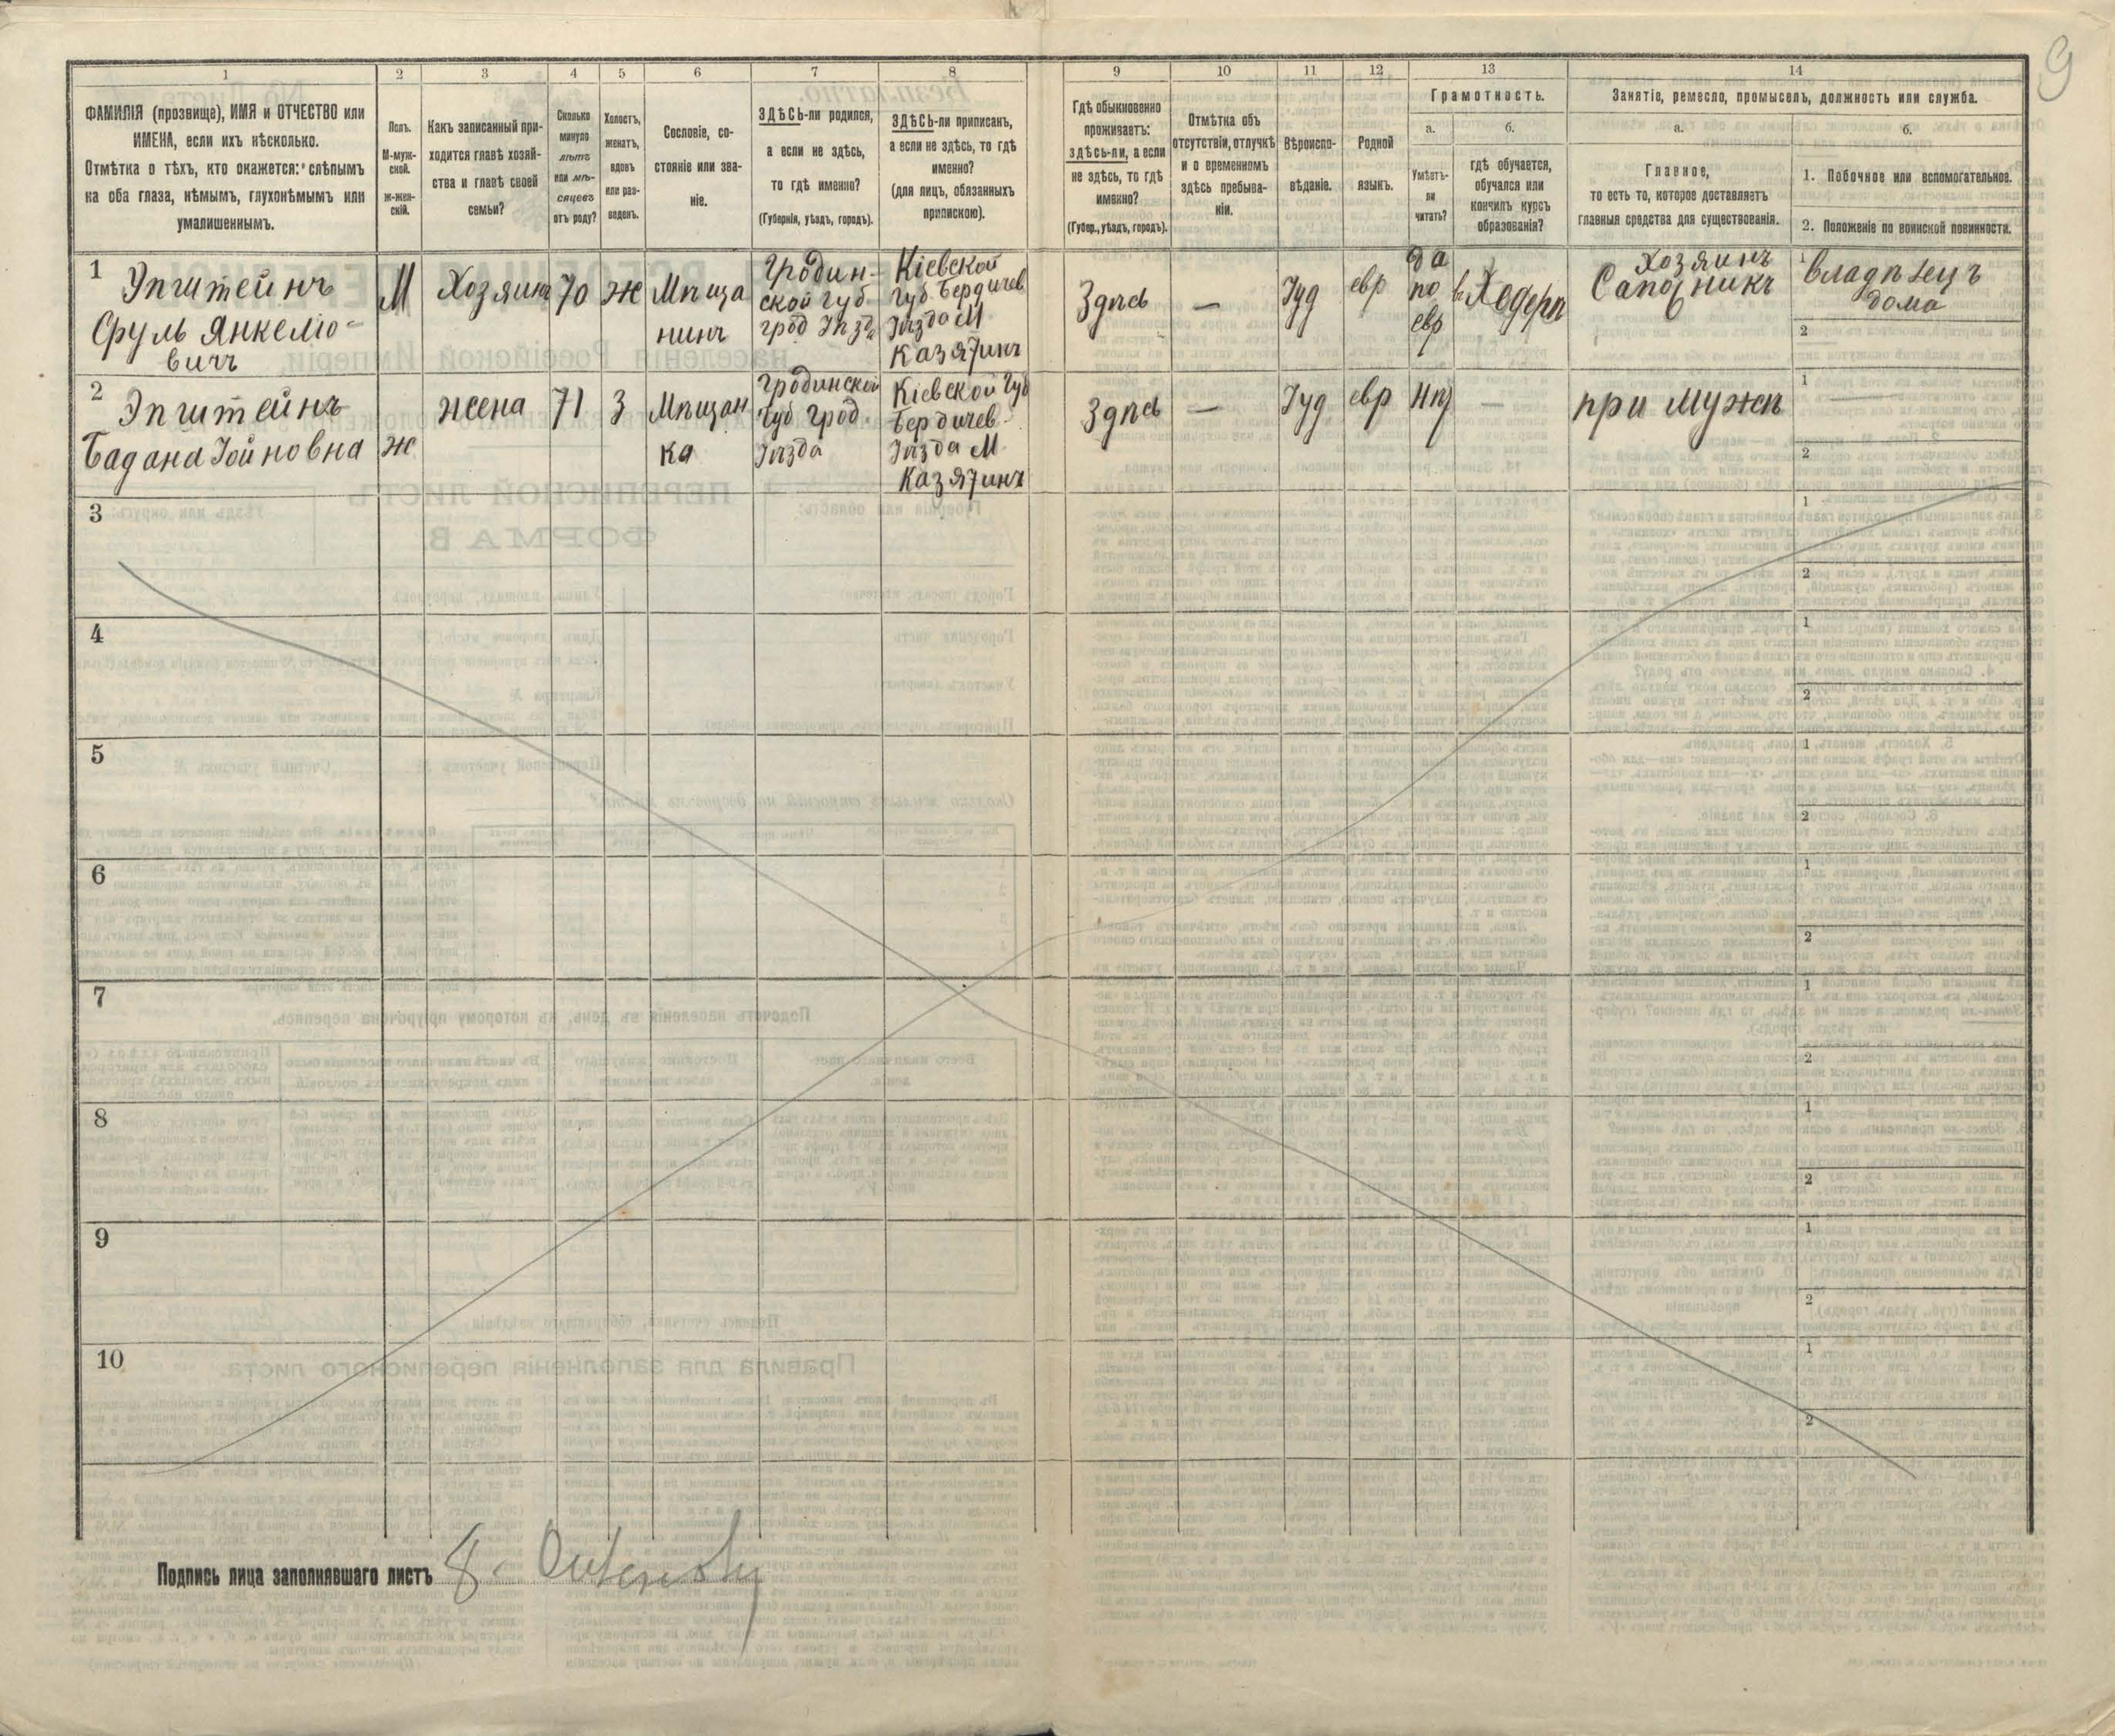 9
1
2
3
4
5
6
7
8
9
10
11
12
13
14
ФАМИЛІЯ (прозвище), ИМЯ и ОТЧЕСТВО или
ИМЕНА, если ихъ нѣсколько.
Отмѣтка о тѣхъ, кто окажется: слѣпымъ
на оба глаза, нѣмымъ, глухонѣмымъ или
умалишеннымъ.
Полъ.
М-муж-
ской.
ж-жен-
скій.
Какъ записанный при-
ходится главѣ хозяй-
ства и главѣ своей
семьи?
Сколько
минуло
лѣтъ
или мѣ-
сяцевъ
отъ роду?
Холостъ,
женатъ,
вдовъ
или раз-
веденъ.
Сословіе, со-
стояніе или зва-
ніе.
ЗДѢСЬ-ли родился,
а если не здѣсь,
то гдѣ именно?
(Губернія, уѣздъ, городъ).
ЗДѢСЬ-ли приписанъ,
а если не здѣсь, то гдѣ
именно?
(для лицъ, обязанныхъ
припискою).
Гдѣ обыкновенно
проживаетъ:
здѣсь-ли, а если
не здѣсь, то гдѣ
именно?
(Губер., уѣздъ, городъ).
Отмѣтка объ
отсутствіи, отлучкѣ
и о временномъ
здѣсь пребыва-
ніи.
Вѣроиспо-
вѣданіе.
Родной
языкъ.
Грамотность.
а.
Умѣетъ-
ли
читать?
б.
гдѣ обучается,
обучался или
кончилъ курсъ
образованія?
Занятіе, ремесло, промыселъ, должность или служба.
а.
Главное,
то есть то, которое доставляетъ
главныя средства для существованія.
б.
1. Побочное или вспомогательное.
2. Положеніе по воинской повинности.
1
Эпштейнъ
Сруль Янкеліо-
вичъ
М
Хозяинъ
70
ж
Мѣща
нинъ
Гродин-
ской губ.
грод Уѣзда
Кіевской
губ. Бердичев
Уѣзда М
Казятинъ
Здѣсь
—
Іуд
евр
да
по
евр
в Хедерѣ
Хозяинъ
Сапожникъ
1
владѣлецъ
дома
2
2
Эпштейнъ
Бадана Іойновна
ж
жена
71
З
Мѣщан
ка
Гродинской
Губ Грод.
Уѣзда
Кіевской Губ
Бердичев-
Уѣзда М
Казятинъ
Здѣсь
—
Іуд
евр
Нѣт
—
при мужѣ
1
2
3
1
2
4
1
2
5
1
2
6
1
2
7
1
2
8
1
2
9
1
2
10
1
2
Подпись лица заполнявшаго листъ